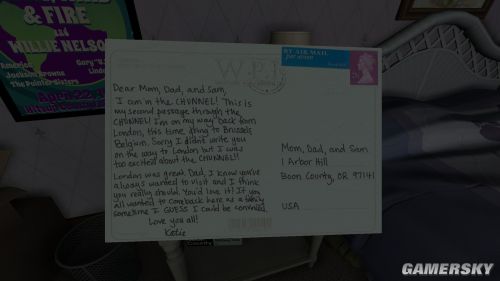 & FIRE
WILLIE NELSON
America
Jackson Browne
The Pointer Sisters
Gary
April 22
W.P.I
BY AIR MAIL
par avion
Dear Mom, Dad, and Sam,
I am in the CHUNNEL! This is
my second passage through the
CHUNNEL! I'm on my way back from
London, this time going to Brussels,
Belgium. Sorry I didn't write you
on the way to London but I was
too excited about the CHUNNEL!!
London was great. Dad, I know you've
always wanted to visit and I think
you really should. You'd love it! If you
all wanted to come back here as a family
sometime I GUESS I could be convinced.
Love you all!
Katie
Mom, Dad, and Sam
1 Arbor Hill
Boon County, OR 97141
USA
County
GAMERSKY